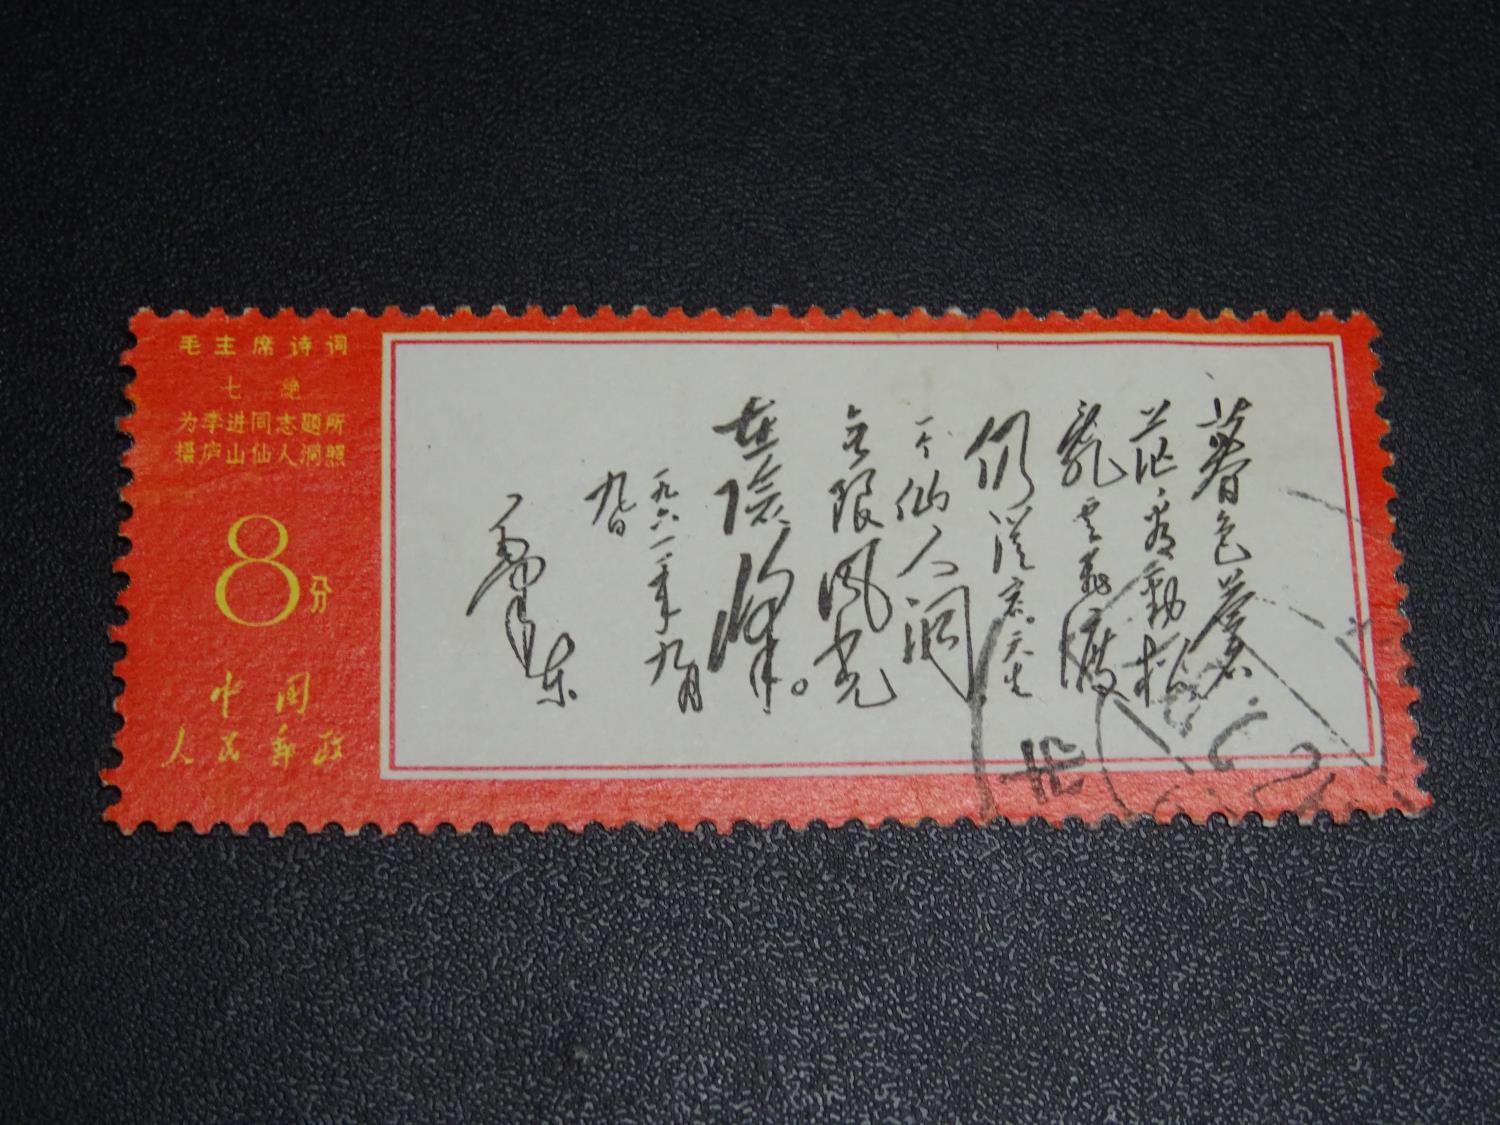 毛主席诗词
七绝
为李进同志题所
摄庐山仙人洞照
8分
中国
人民邮政
暮色苍
茫看劲松
乱云飞渡
仍从容。天生
一个仙人洞
无限风光
在险峰。
一九六一年九月
九日
毛泽东